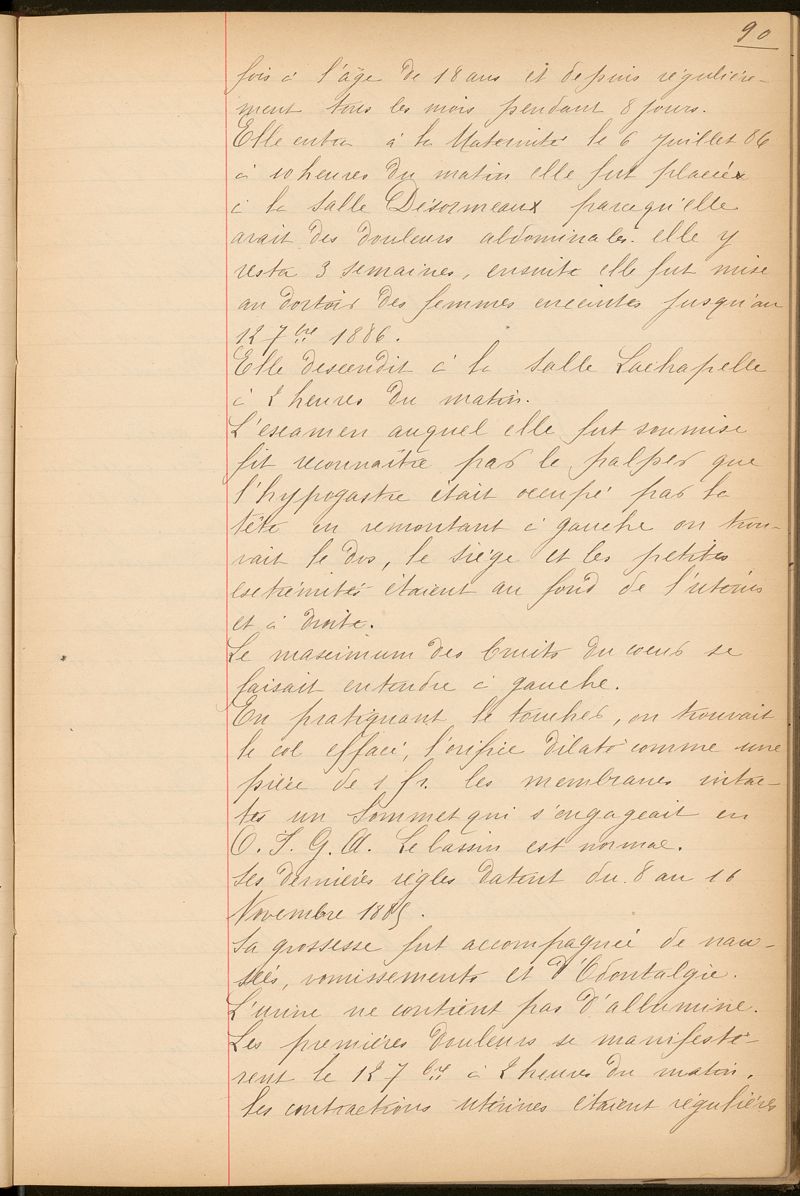 90
fois à l'âge de 18 ans et depuis régulière-
ment tous les mois pendant 8 jours.
Elle entra à la Maternité le 6 Juillet 86
à 10 heures du matin elle fut placée
à la Salle Désormeaux parcequ'elle
avait des douleurs abdominales. elle y
resta 3 semaines, ensuite elle fut mise
au dortoir des femmes enceintes jusqu'au
12 7bre 1886.
Elle descendit à la Salle Lachapelle
à 2 heures du matin.
L'examen auquel elle fut soumise
fit reconnaître par le palper que
l'hypogastre était occupé par la
tête en remontant à gauche on trou-
vait le dos, le siège et les petites
extrémités étaient au fond de l'utérus
et à droite.
Le maximum des bruits du coeur se
faisait entendre à gauche.
En pratiquant le toucher, on trouvait
le col effacé, l'orifice dilaté comme une
pièce de 1 fr. les membranes intac-
tes un Sommet qui s'engageait en
O. I. G. A. Le bassin est normal.
Ses dernières règles datent du 8 au 16
Novembre 1885.
Sa grossesse fut accompagnée de nau-
sées, vomissements et d'Odontalgie.
L'urine ne contient pas d'albumine.
Les premières douleurs se manifestè-
rent le 12 7bre à 2 heures du matin.
les contractions utérines étaient régulières